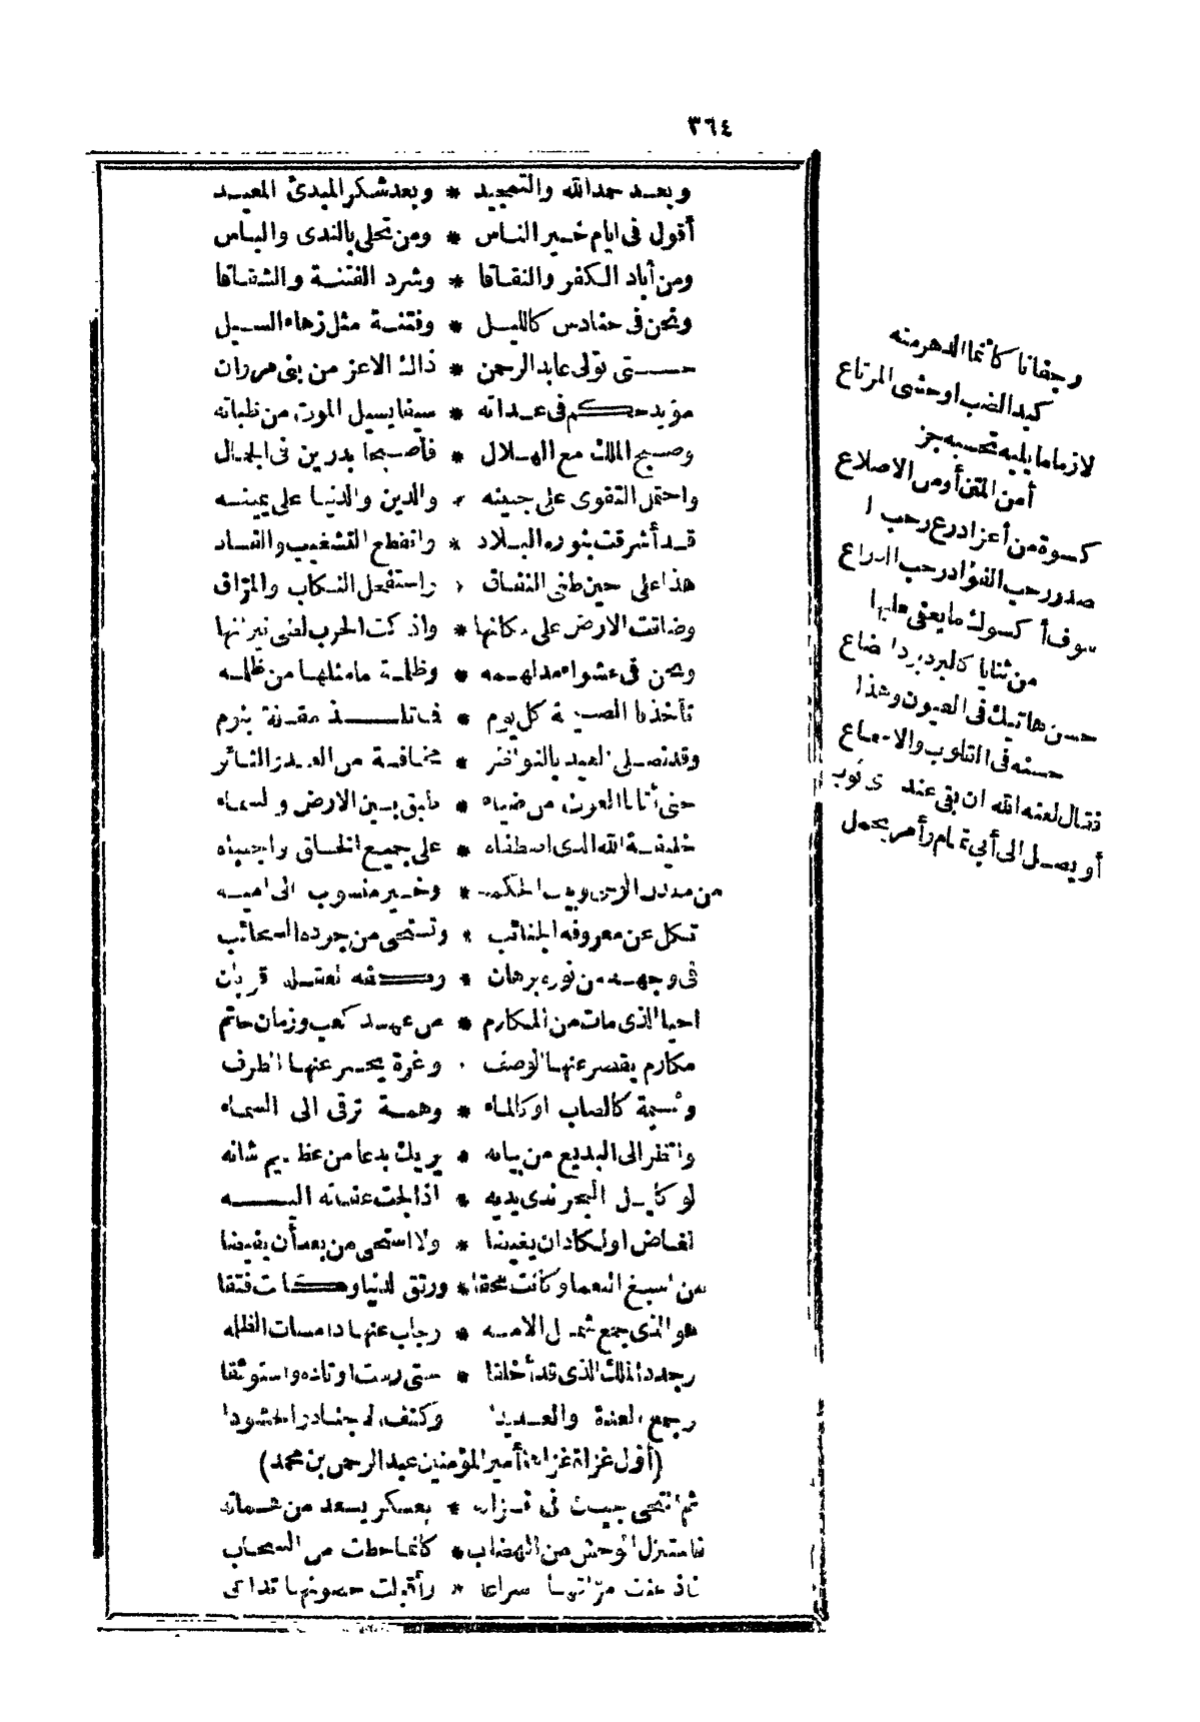 ٣٦٤
وبعد حمد الله والتمجيد * وبعد شكر المبدئ المعيد
أقول فى ايام خير الناس * ومن تحلى بالندى والباس
ومن أباد الكفر والنفاقا * وشرد الفتنة والشقاقا
ونحن فى حنادس كالليل * وفتنة مثل زهاء السيل
حتى تولى عابد الرحمن * ذاك الاعز من بنى مروان
مؤيد حكم فى عداته * سيفا يسيل الموت من ظباته
وصبح الملك مع الهلال * فأصبحا بدرين فى الجمال
واحتمل التقوى على جبينه * والدين والدنيا على يمينه
قد أشرقت بنوره البلاد * وانقطع التشغيب والفساد
هذا على حين طغى النفاق * واستفحل النكاب والمراق
وضاقت الارض على سكانها * واذكت الحرب لظى نيرانها
ونحن فى عشواء مدلهمه * وظلمة ما مثلها من ظلمه
تأخذنا الصيحة كل يوم * فما تلذ مقلة بنوم
وقد نصلى العيد بالنواظر * مخافة من العدو الثائر
حتى أتانا الغوث من ضياء * طبق بين الارض والسماء
خليفة الله الذى اصطفاه * على جميع الخلق واجتباه
من معدن الوحى وبيت الحكمه * وخير منسوب الى
تكل عن معروفه الجنائب * وتستحى من جوده السحائب
فى وجهه من نوره برهان * وكفه تقبيلها قربان
احيا الذى مات من المكارم * من عهد كعب وزمان حاتم
مكارم يقصر عنها الوصف * وغرة يحسر عنها الطرف
وشيمة كالصاب او كالماء * وهمة ترقى الى السماء
وانظر الى البديع من بيانه * يريك بدعا من عظيم شانه
لو كايل البحر ندى يديه * اذا لجت عفاته اليه
لغاض او لكاد ان يغيضا * ولا استحى من بعد أن يفيضا
من اسبغ النعما وكانت محقا * ورتق الدنيا وكانت فتقا
هو الذى جمع شمل الامه * وجاب عنها دامسات الظلمه
وجدد الملك الذى قد أخلقا * حتى رست اوتاده واستوثقا
وجمع العدة والعديدا وكثف الاجناد والحشودا
(أول غزاة غزاها أمير المؤمنين عبد الرحمن بن محمد)
ثم انتحى جيان فى غزاته * بعسكر يسعد من
فاستنزل الوحش من الهضاب * كأنما حطت من السحاب
فأذعنت مراقها سراعا * وأقبلت حصونها تداعى
وجفانا كأنما الدهر منه
كبد الضب او حشى المرتاع
لازما ما يليه تحسبه جز
أ من المتن أو من الاضلاع
كسوة من أعز أدرع رحب ا
صدر رحب الفؤاد رحب الذراع
سوف أكسوك ما يعفى عليها
من ثنايا كالبرد برد الضاع
حسن هاتيك فى العيون وهذا
حسنه فى القلوب والاسماع
فقال لعنه الله ان بقى عندى ثوب
أو يصل الى أبى تمام وأمر بحمل